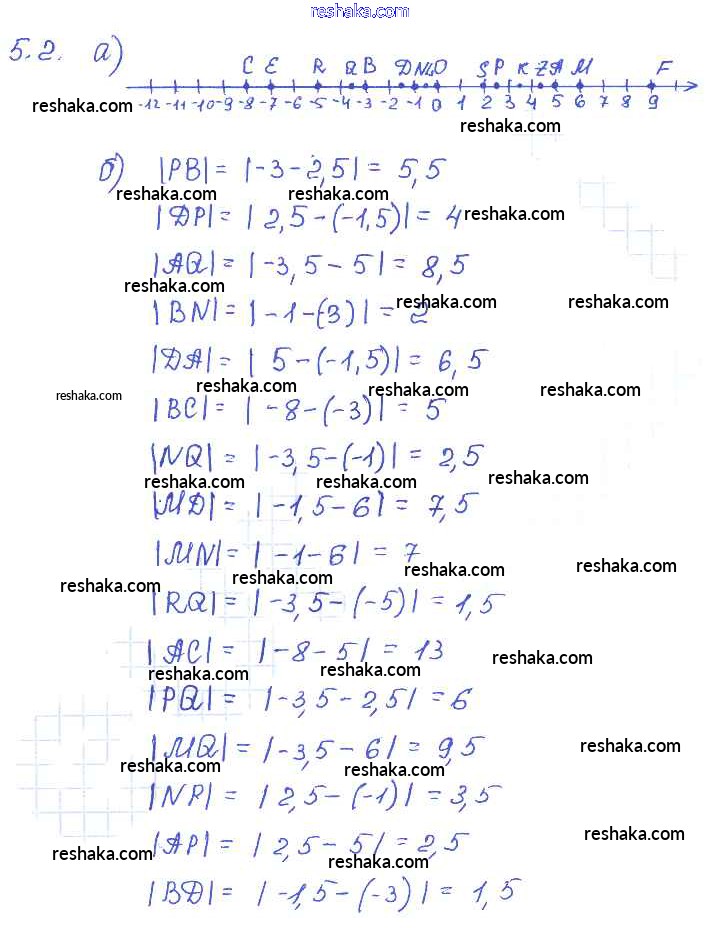 reshaka.com
5.2. а)
C E R Q B D N L O S P K Z A M F
-12 -11 -10 -9 -8 -7 -6 -5 -4 -3 -2 -1 0 1 2 3 4 5 6 7 8 9
reshaka.com
reshaka.com
б) |PB| = |-3-2,5| = 5,5
reshaka.com reshaka.com
|DP| = |2,5-(-1,5)| = 4
reshaka.com
|AQ| = |-3,5-5| = 8,5
reshaka.com
|BN| = |-1-(-3)| = 2
reshaka.com reshaka.com
|DA| = |5-(-1,5)| = 6,5
reshaka.com reshaka.com reshaka.com reshaka.com
|BC| = |-8-(-3)| = 5
|NQ| = |-3,5-(-1)| = 2,5
reshaka.com reshaka.com reshaka.com
|MD| = |-1,5-6| = 7,5
|MN| = |-1-6| = 7
reshaka.com reshaka.com reshaka.com reshaka.com
|RQ| = |-3,5-(-5)| = 1,5
|AC| = |-8-5| = 13
reshaka.com reshaka.com reshaka.com
|PQ| = |-3,5-2,5| = 6
|MQ| = |-3,5-6| = 9,5
reshaka.com reshaka.com reshaka.com
|NP| = |2,5-(-1)| = 3,5
|AP| = |2,5-5| = 2,5
reshaka.com reshaka.com reshaka.com
|BD| = |-1,5-(-3)| = 1,5